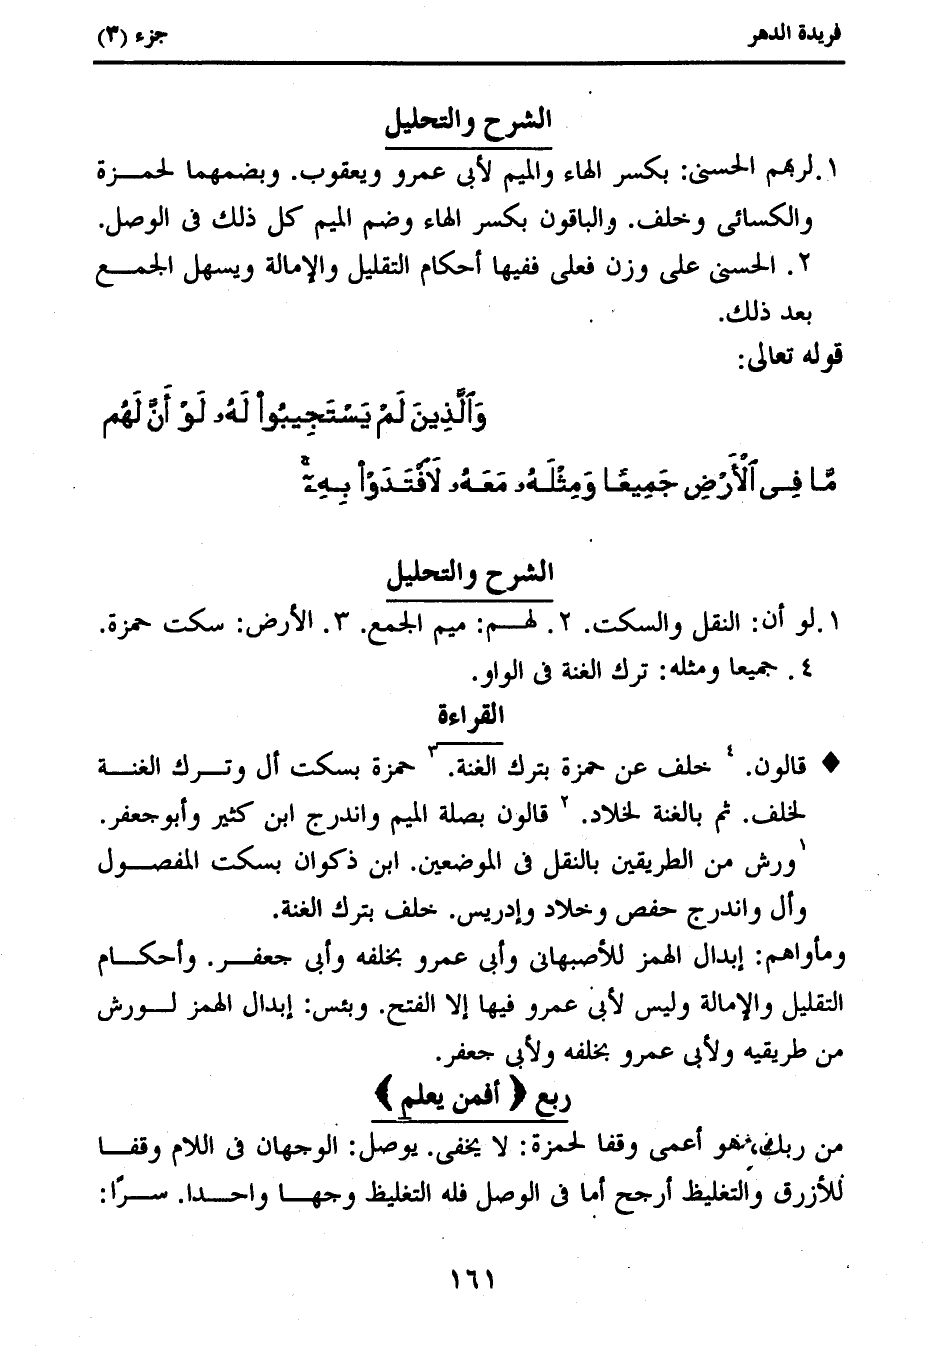 فريدة الدهر
جزء (٣)
الشرح والتحليل
١.لربهم الحسنى: بكسر الهاء والميم لأبى عمرو ويعقوب. وبضمهما لحمزة
والكسائى وخلف. والباقون بكسر الهاء وضم الميم كل ذلك فى الوصل.
٢. الحسنى على وزن فعلى ففيها أحكام التقليل والإمالة ويسهل الجمع
بعد ذلك.
قوله تعالى:
وَٱلَّذِينَ لَمْ يَسْتَجِيبُوا۟ لَهُۥ لَوْ أَنَّ لَهُم
مَّا فِى ٱلْأَرْضِ جَمِيعًا وَمِثْلَهُۥ مَعَهُۥ لَٱفْتَدَوْا۟ بِهِۦٓ ۚ
الشرح والتحليل
١.لو أن: النقل والسكت. ٢. لهم: ميم الجمع. ٣. الأرض: سكت حمزة.
٤. جميعا ومثله: ترك الغنة فى الواو.
القراءة
♦ قالون. ٤ خلف عن حمزة بترك الغنة. ٣ حمزة بسكت أل وترك الغنة
لخلف. ثم بالغنة لخلاد. ٢ قالون بصلة الميم واندرج ابن كثير وأبوجعفر.
١ ورش من الطريقين بالنقل فى الموضعين. ابن ذكوان بسكت المفصول
وأل واندرج حفص وخلاد وإدريس. خلف بترك الغنة.
ومأواهم: إبدال الهمز للأصبهانى وأبى عمرو بخلفه وأبى جعفر. وأحكام
التقليل والإمالة وليس لأبى عمرو فيها إلا الفتح. وبئس: إبدال الهمز لورش
من طريقيه ولأبى عمرو بخلفه ولأبى جعفر.
ربع ﴿ أفمن يعلم ﴾
من ربك، هو أعمى وقفا لحمزة: لا يخفى. يوصل: الوجهان فى اللام وقفا
للأزرق والتغليظ أرجح أما فى الوصل فله التغليظ وجها واحدا. سرًا:
١٦١